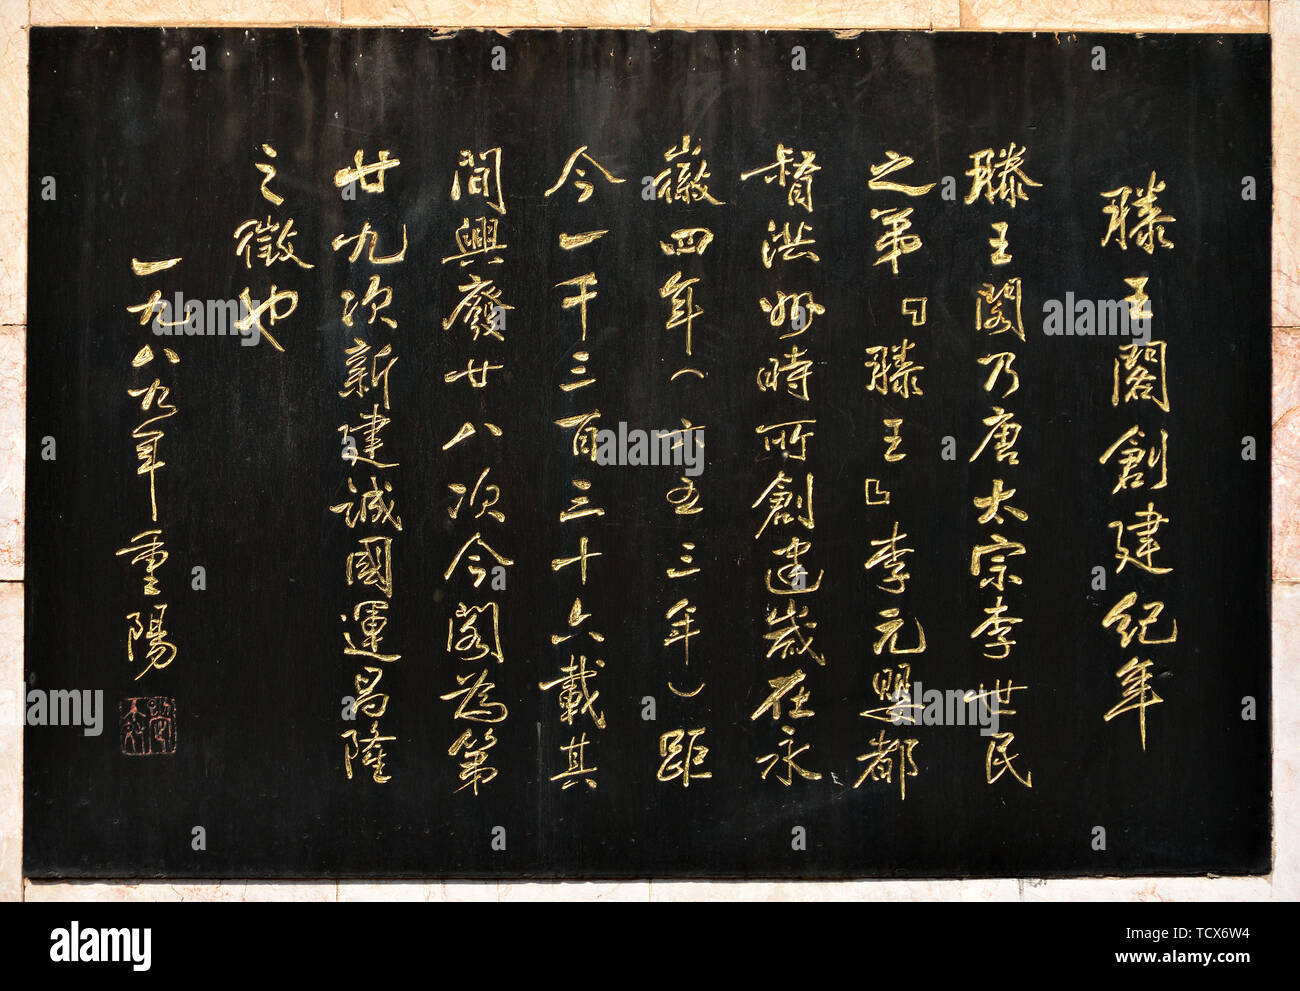 滕王閣創建紀年
滕王閣乃唐太宗李世民
之弟『滕王』李元嬰都
督洪州時所創建歲在永
徽四年(六五三年)距
今一千三百三十六載其
間興廢廿八次今閣為第
廿九次新建誠國運昌隆
之徵也
一九八九年重陽
alamy
Image ID: TCX6W4
www.alamy.com